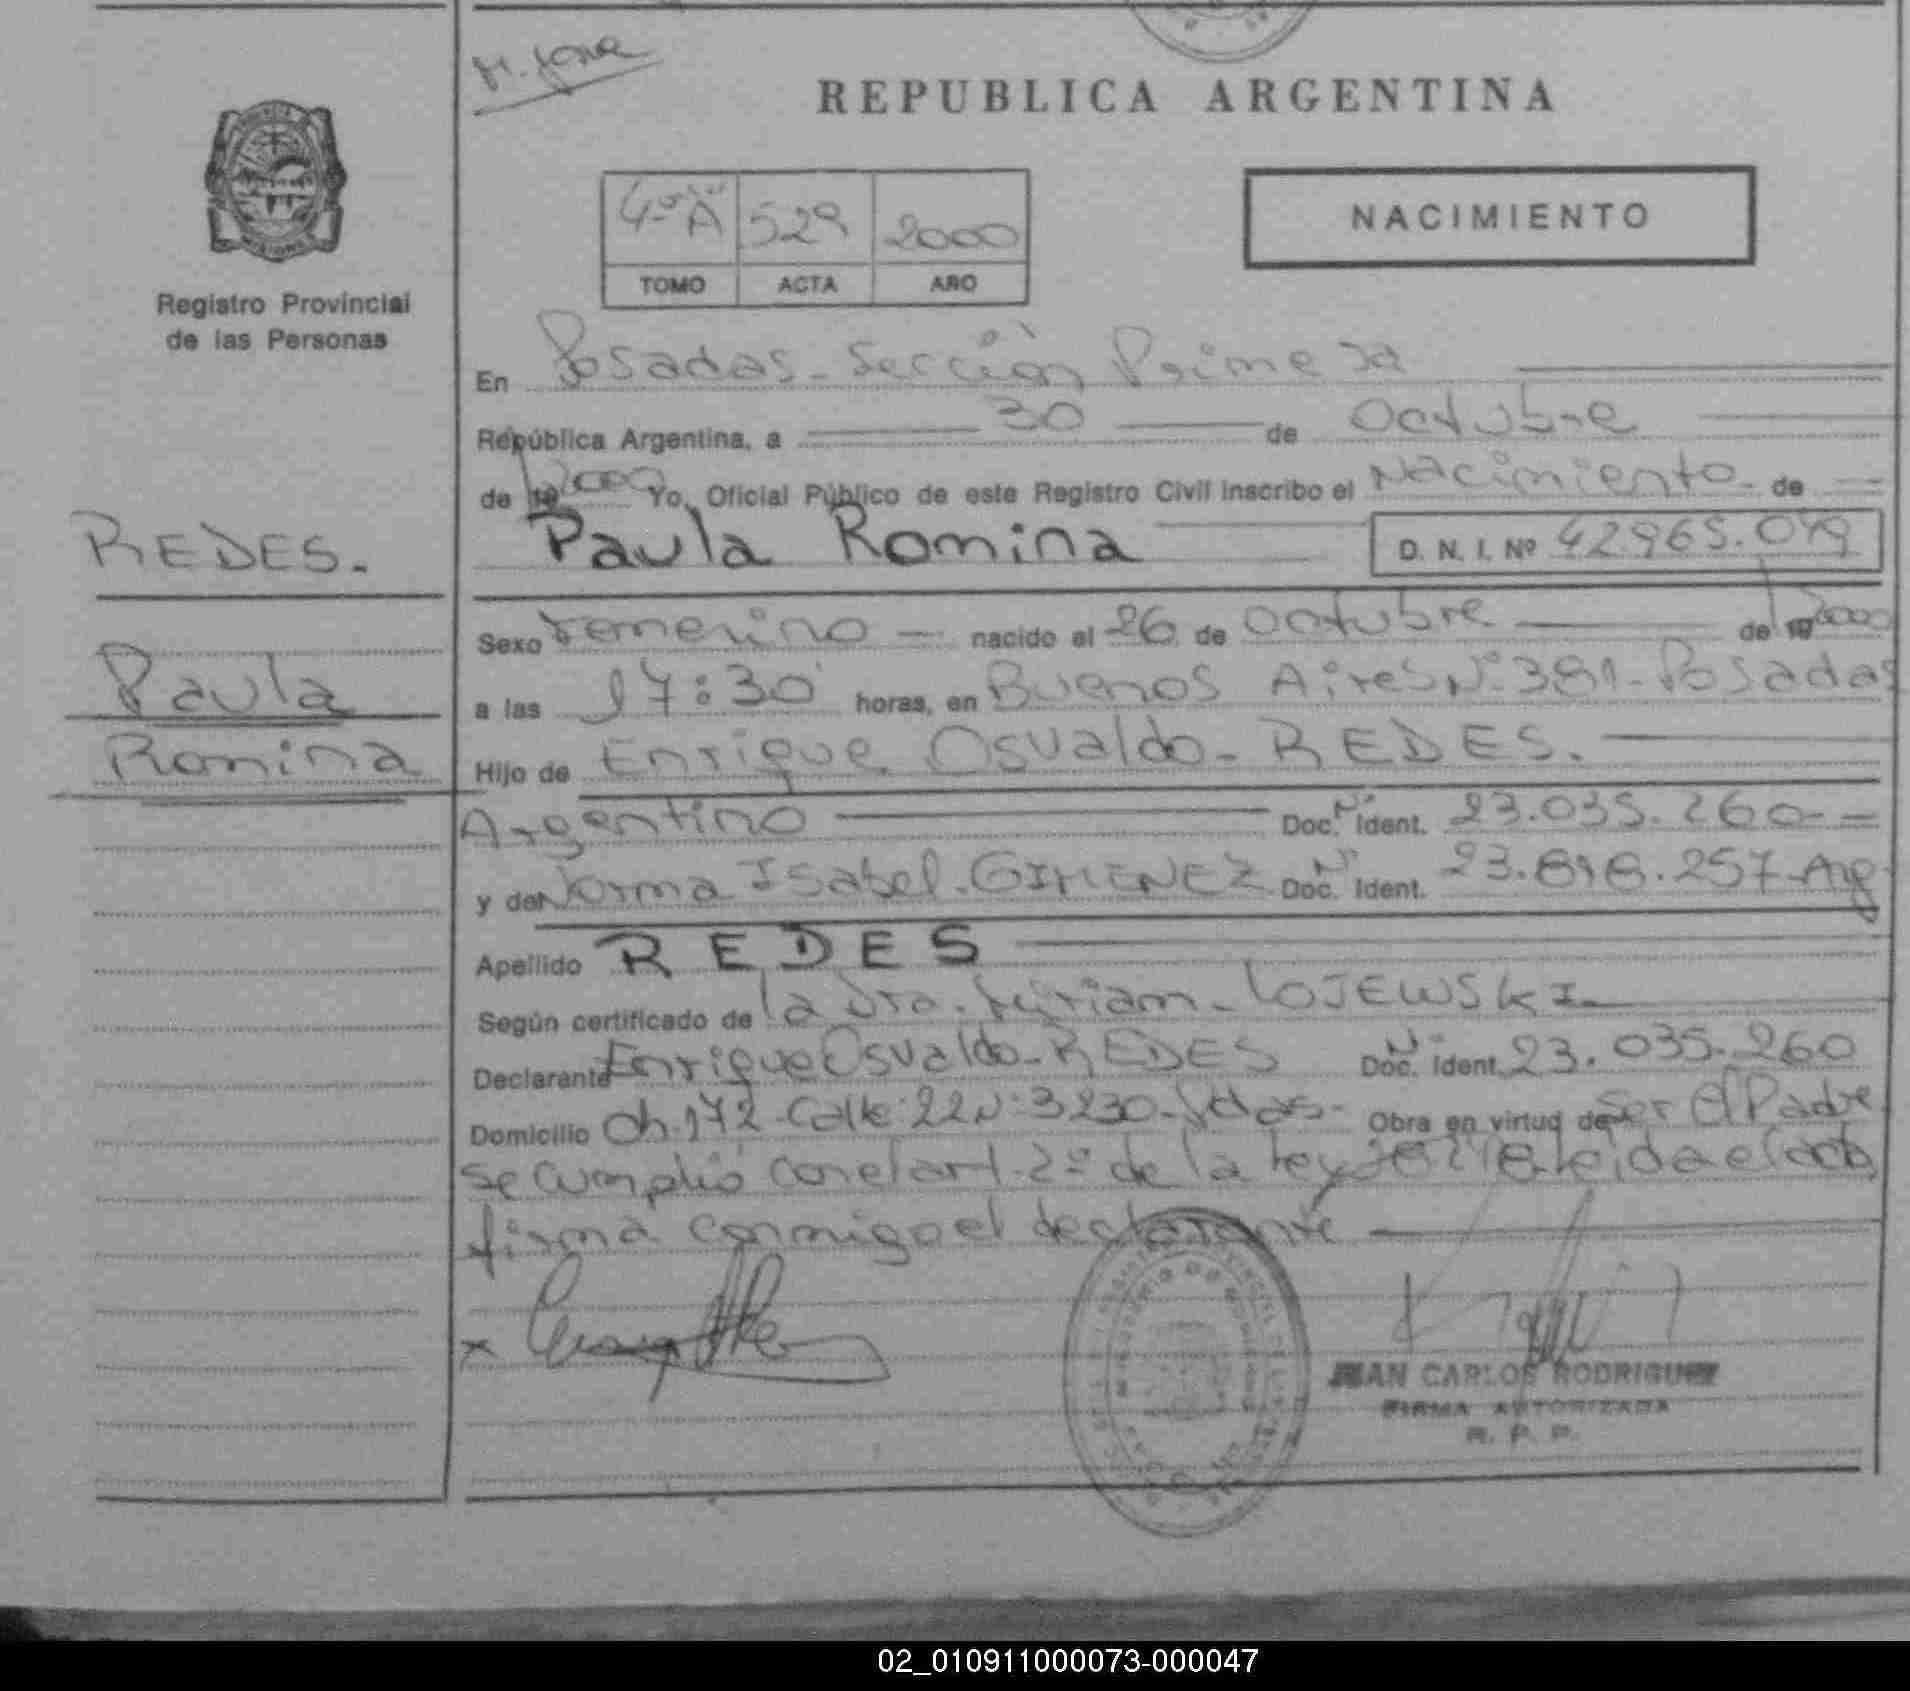 REPUBLICA ARGENTINA
4º A 529 2000
TOMO ACTA AÑO
NACIMIENTO
Registro Provincial
de las Personas
En Posadas - Sección Primera
República Argentina, a 30 de Octubre
de 19 2000 Yo, Oficial Público de este Registro Civil inscribo el Nacimiento de
REDES.
Paula Romina D. N. I. Nº 42.965.079
Sexo Femenino nacido el 26 de Octubre de 19 2000
Paula
a las 17:30 horas, en Buenos Aires Nº 381 - Posadas
Romina
Hijo de Enrique Osvaldo - REDES.
Argentino Doc. Nº Ident. 23.035.260
y de Norma Isabel - GIMENEZ Doc. Nº Ident. 23.816.257 - Arg
Apellido REDES
Según certificado de la Dra. Miriam - LOJEWSKI
Declarante Enrique Osvaldo - REDES Doc. Nº Ident. 23.035.260
Domicilio Ch. 172 - Calle 22 Nº 3230 - Pdas - Obra en virtud de ser el Padre
se cumplió con el art. 2º de la Ley leida el acta
firma conmigo el declarante
JUAN CARLOS RODRIGUEZ
FIRMA AUTORIZADA
R. P. P.
02_010911000073-000047